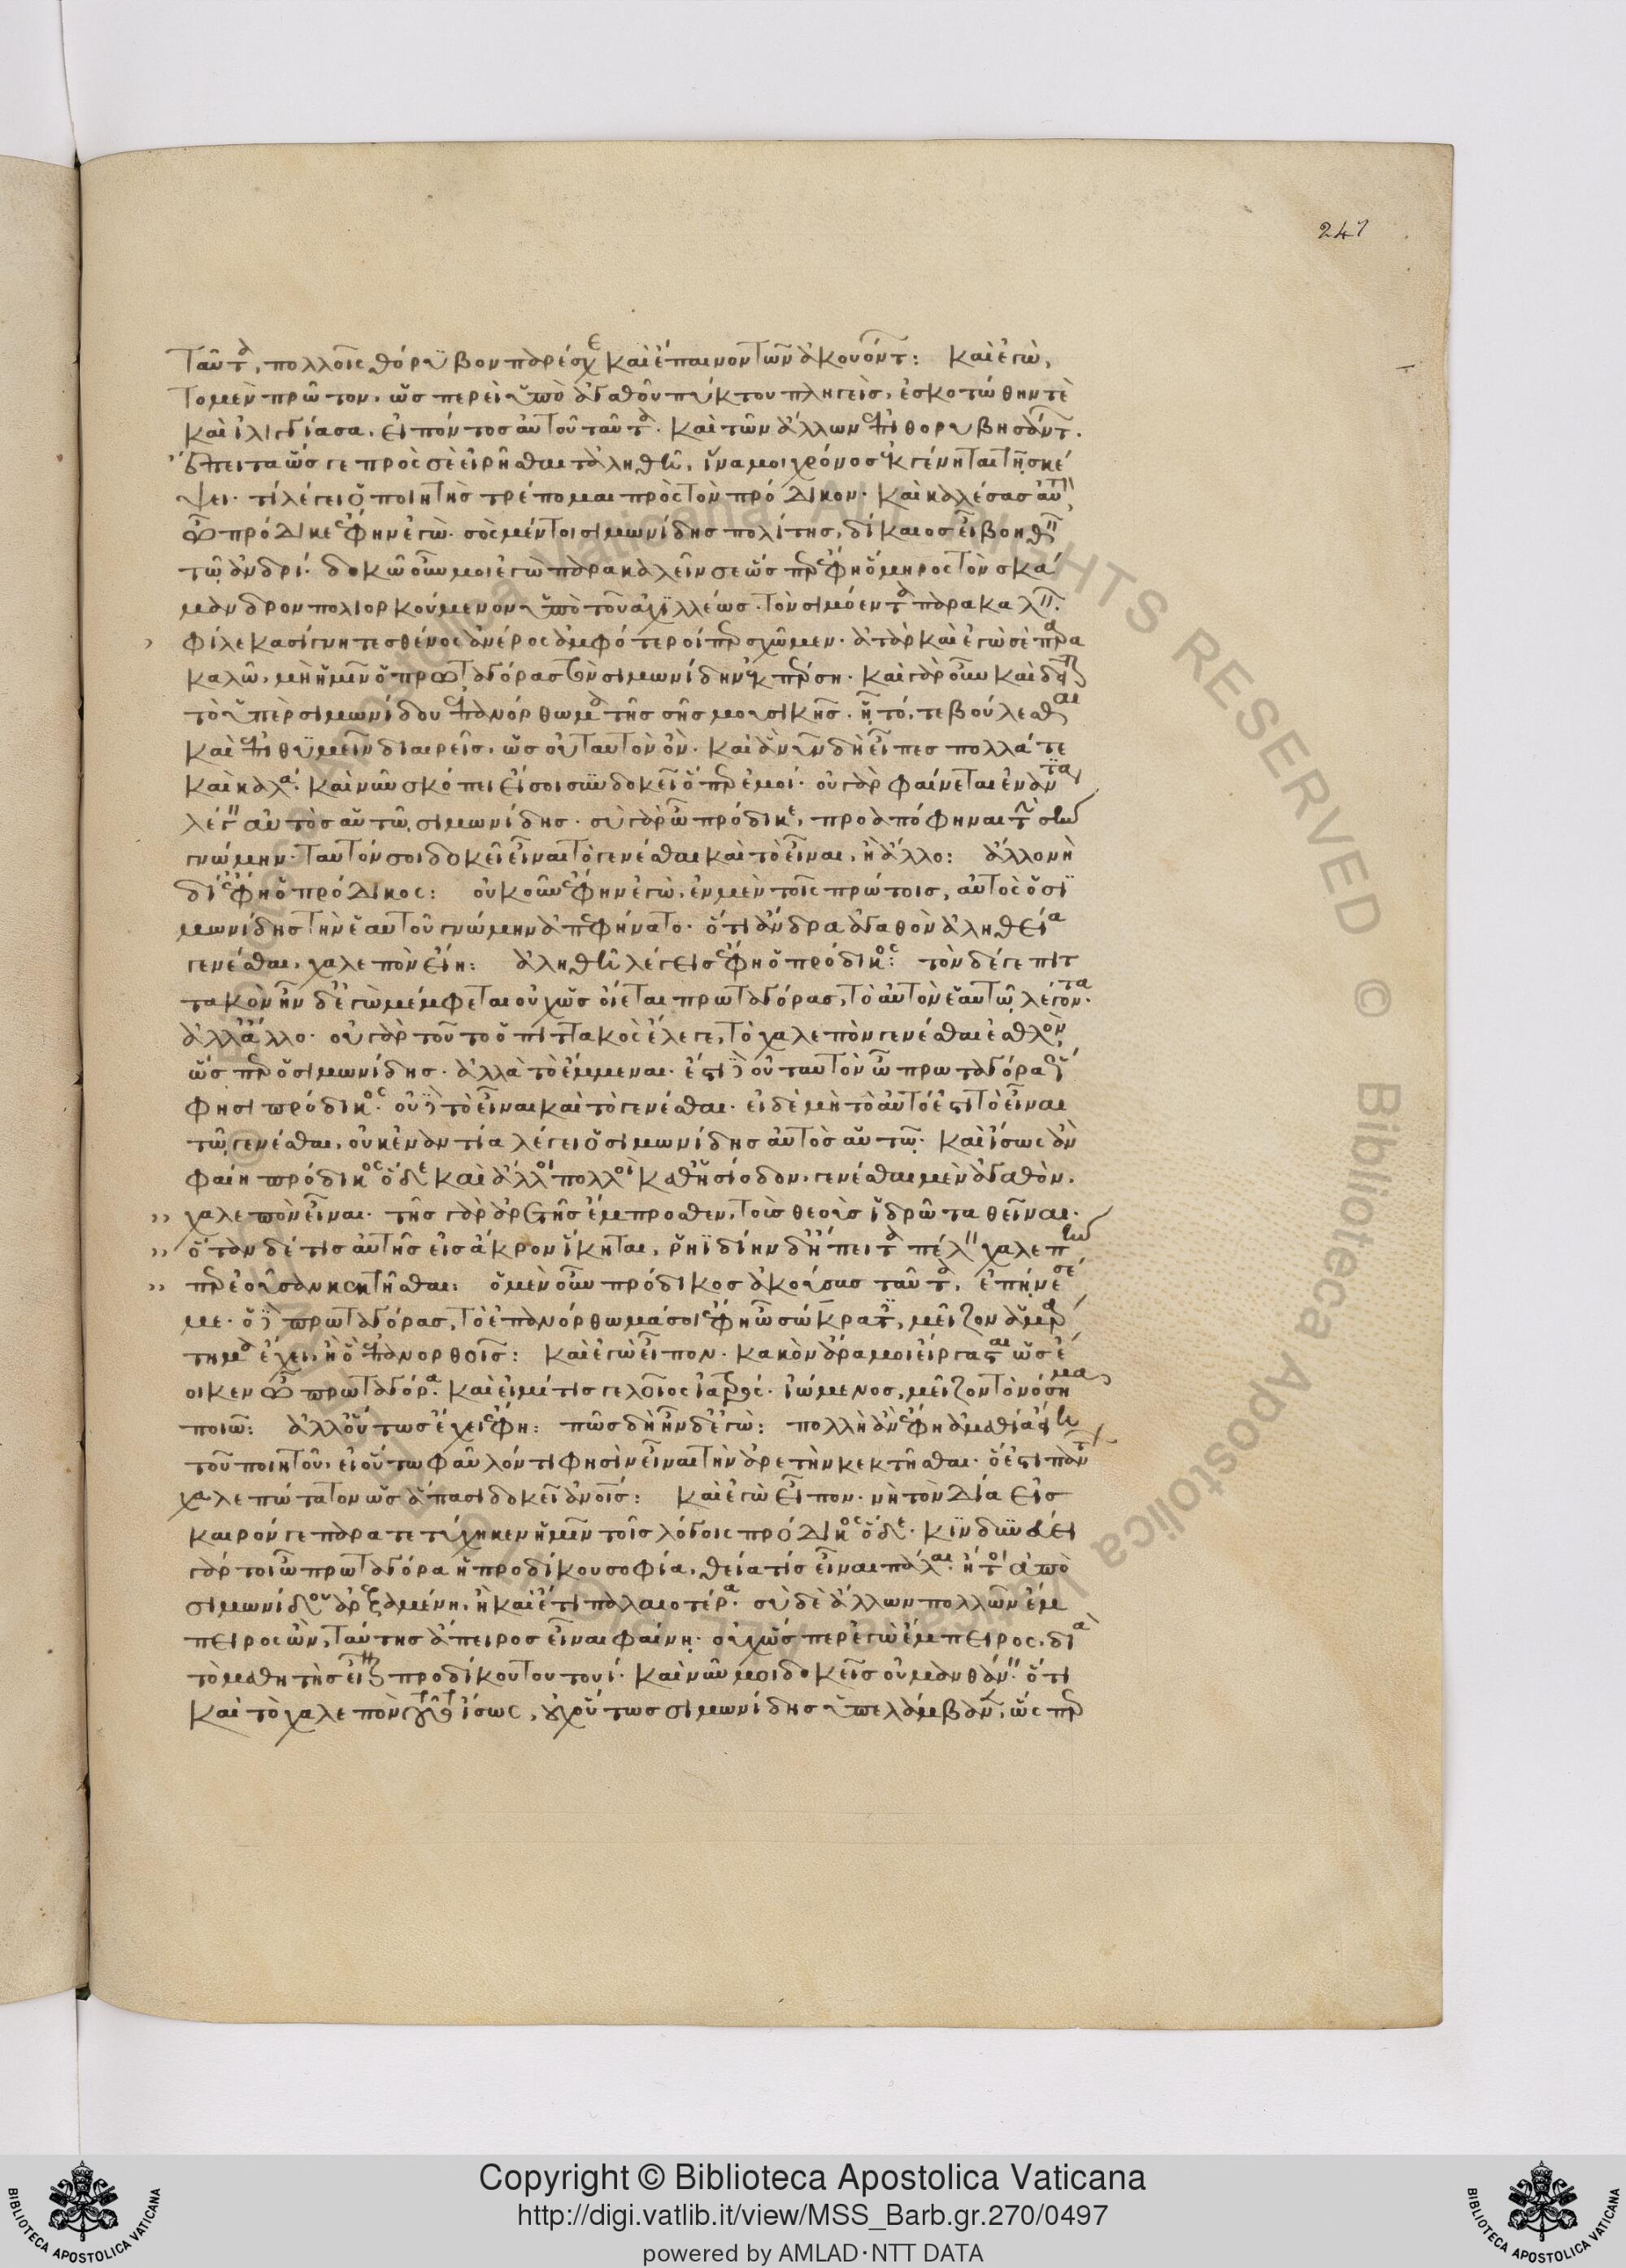 247
ταῦτα, πολλοῖς θόρυβον παρέσχε καὶ ἔπαινον τῶν ἀκουόντ: καὶ ἐγὼ,
τομὲν πρῶτον, ὥσπερεὶ ὑπὸ ἀγαθοῦ πύκτου πληγεὶς, ἐσκοτώθην τὲ
καὶ ἰλιγγίασα. εἰπόντος αὐτοῦ ταῦτα. καὶ τῶν ἄλλων ἐπιθορυβησάντ.
ἔπειτα ὥς γε πρὸς σὲ εἰρῆσθαι τἀληθῆ, ἵνα μοι χρόνος ἐγγένηται τῇ σκέ
ψει· τί λέγει ὁ ποιητὴς τρέπομαι πρὸς τὸν πρόδικον. καὶ καλέσας αὐτ
ὦ πρόδικε ἔφην ἐγὼ. σὸς μέντοι σιμωνίδης πολίτης, δίκαιος εἶ βοηθεῖν
τῷ ἀνδρί. δοκῶ οὖν μοι ἐγὼ παρακαλεῖν σε ὥσπερ ἔφη ὅμηρος τὸν σκά
μανδρον πολιορκούμενον ὑπὸ τοῦ ἀχιλλέως. τὸν σιμόεντα παρακαλεῖν.
φίλε κασίγνητε σθένος ἀνέρος ἀμφότεροί περ σχῶμεν. ἀτὰρ καὶ ἐγὼ σὲ παρα
καλῶ, μὴ ἡμῖν ὁ πρωταγόρας τὸν σιμωνίδην ἐκπέρση. καὶ γὰρ οὖν καὶ δεῖται
τὸ ὑπὲρ σιμωνίδου ἐπανόρθωμα τῆς σῆς μουσικῆς. ᾗ τό, τε βούλεσθαι
καὶ ἐπιθυμεῖν διαιρεῖς, ὡς οὐ ταυτὸν ὂν. καὶ ἃ νῦν δὴ εἶπες πολλά τε
καὶ καλά. καὶ νῦν σκόπει εἴ σοι συνδοκεῖ ὅπερ ἐμοί. οὐ γὰρ φαίνεται ἐναντία
λέγειν αὐτὸς αὑτῷ σιμωνίδης. σὺ γὰρ ὦ πρόδικε, προαπόφηναι τὴν σὴν
γνώμην. ταυτόν σοι δοκεῖ εἶναι τὸ γενέσθαι καὶ τὸ εἶναι, ἢ ἄλλο: ἄλλο νὴ
δί ἔφη ὁ πρόδικος: οὐκοῦν ἔφην ἐγὼ, ἐν μὲν τοῖς πρώτοις, αὐτὸς ὁ σι
μωνίδης τὴν ἑαυτοῦ γνώμην ἀπεφήνατο. ὅτι ἄνδρα ἀγαθὸν ἀληθεία
γενέσθαι, χαλεπὸν εἴη: ἀληθῆ λέγεις ἔφη ὁ πρόδικος: τὸν δέ γε πιτ
τακὸν ἦν δ' ἐγὼ μέμφεται οὐχ ὡς οἴεται πρωταγόρας, τὸ αὐτὸν ἑαυτῷ λέγοντα.
ἀλλ' ἄλλο. οὐ γὰρ τοῦτο ὁ πιττακὸς ἔλεγε, τὸ χαλεπὸν γενέσθαι ἐσθλὸν,
ὥσπερ ὁ σιμωνίδης. ἀλλὰ τὸ ἔμμεναι. ἔστι δὲ οὐ ταυτὸν ὦ πρωταγόρα ὥς
φησι πρόδικος. οὗ δὲ τὸ εἶναι καὶ τὸ γενέσθαι. εἰ δὲ μὴ τὸ αὐτό ἐστι τὸ εἶναι
τῷ γενέσθαι, οὐκ ἐναντία λέγει ὁ σιμωνίδης αὐτὸς αὑτῷ. καὶ ἴσως ἂν
φαίη πρόδικος ὅδε καὶ ἄλλοι πολλοὶ καθ' ἡσίοδον, γενέσθαι μὲν ἀγαθὸν,
χαλεπὸν εἶναι. τῆς γὰρ ἀρετῆς ἔμπροσθεν, τοὺς θεοὺς ἱδρῶτα θεῖναι.
ὅταν δέ τις αὐτῆς εἰς ἄκρον ἵκηται, ῥηϊδίην δἤπειτα πέλειν χαλεπήν
περ ἐοῦσαν κεκτῆσθαι: ὁ μὲν οὖν πρόδικος ἀκούσας ταῦτα, ἐπῄνεσέ
με. ὁ δὲ πρωταγόρας, τὸ ἐπανόρθωμά σοι ἔφη ὦ σώκρατες, μεῖζον ἁμάρ
τημα ἔχει, ἢ ὃ ἐπανορθοῖς: καὶ ἐγὼ εἶπον. κακὸν ἄρα μοι εἴργασται ὡς ἔ
οικεν ὦ πρωταγόρα. καὶ εἰμί τις γελοῖος ἰατρός. ἰώμενος, μεῖζον τὸ νόσημα
ποιῶ: ἀλλ' οὕτως ἔχει ἔφη: πῶς δὴ ἦν δ' ἐγὼ: πολλὴ ἂν ἔφη ἀμαθία εἴη
τοῦ ποιητοῦ, εἰ οὕτω φαῦλόν τι φησὶν εἶναι τὴν ἀρετὴν κεκτῆσθαι. ὅ ἐστι πάντ
χαλεπώτατον ὡς ἅπασι δοκεῖ ἀνοις: καὶ ἐγὼ εἶπον. νὴ τὸν Δία εἰς
καιρόν γε παρατετύχηκεν ἡμῖν τοῖς λόγοις πρόδικος ὅδε. κινδυνεύει
γάρ τοι ὦ πρωταγόρα ἡ προδίκου σοφία, θεία τις εἶναι πάλαι. ἤτοι ἀπὸ
σιμωνίδου ἀρξαμένη, ἢ καὶ ἔτι παλαιοτέρα. σὺ δὲ ἄλλων πολλῶν ἔμ
πειρος ὢν, ταύτης ἄπειρος εἶναι φαίνῃ. οὐχ ὥσπερ ἐγὼ ἔμπειρος, διὰ
τὸ μαθητὴς εἶναι προδίκου τουτουί. καὶ νῦν μοι δοκεῖς οὐ μανθάνειν. ὅτι
καὶ τὸ χαλεπὸν τοῦτο ἴσως, οὐχ οὕτως σιμωνίδης ὑπελάμβανεν, ὥσπερ
Copyright © Biblioteca Apostolica Vaticana
http://digi.vatlib.it/view/MSS_Barb.gr.270/0497
powered by AMLAD·NTT DATA